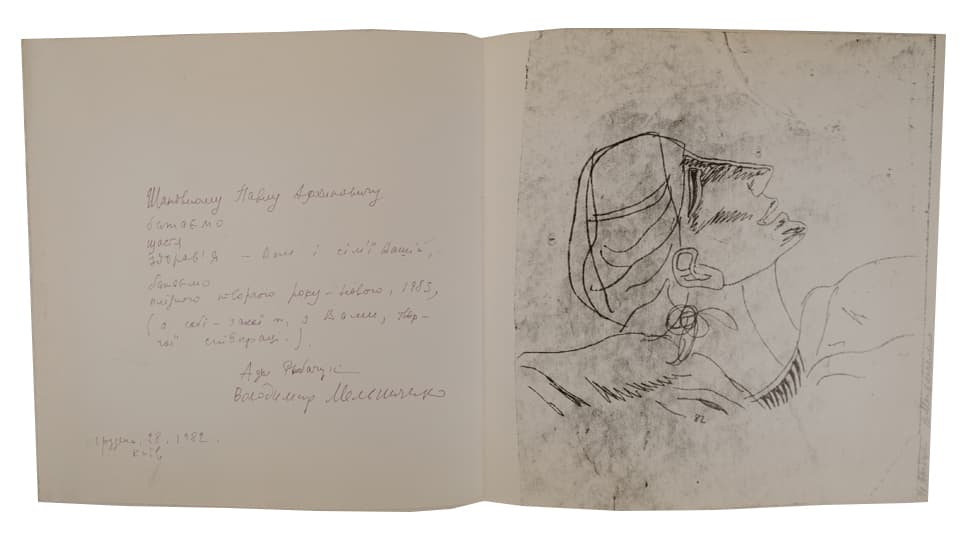 Шановному Павлу Архиповичу
бажаємо
щастя
здоров'я – Вам і сім'ї Вашій,
бажаємо
плідного творчого року – Нового, 1983,
(а собі – такої ж, з Вами, твор-
чої співпраці.).
Ада Рибачук
Володимир Мельниченко
грудень, 28. 1982.
Київ
82